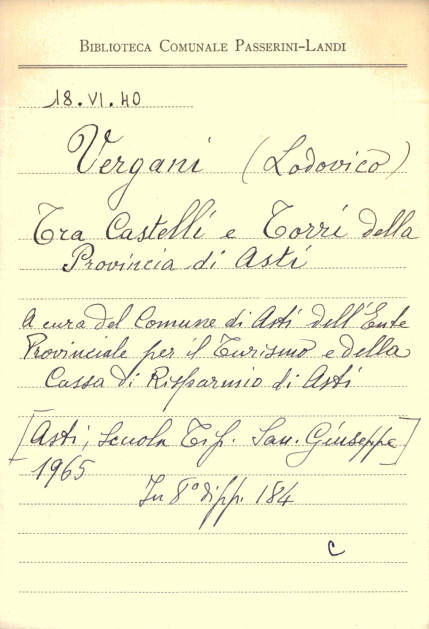 BIBLIOTECA COMUNALE PASSERINI-LANDI
18.VI.40
Vergani (Lodovico)
Tra Castelli e Torri della
Provincia di Asti
A cura del Comune di Asti dell'Ente
Provinciale per il Turismo e della
Cassa di Risparmio di Asti
[Asti, Scuola Tip. San. Giuseppe]
1965
In 8° di pp. 184
c